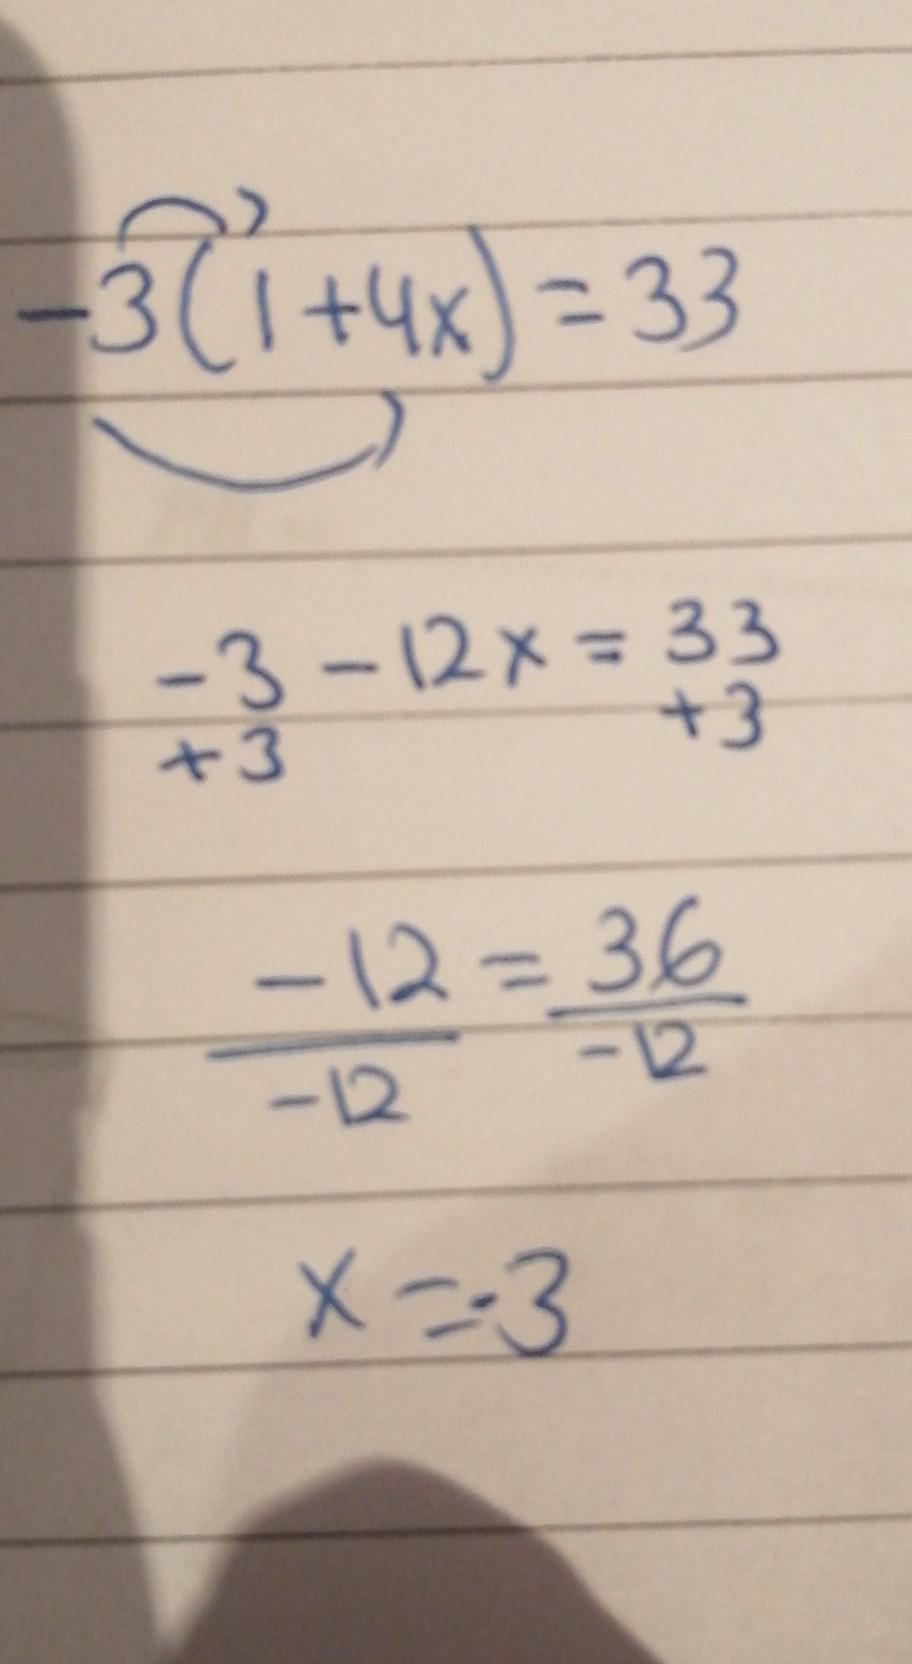 -3(1+4x)=33
-3-12x=33
+3 +3
-12=36
-12 -12
x=-3